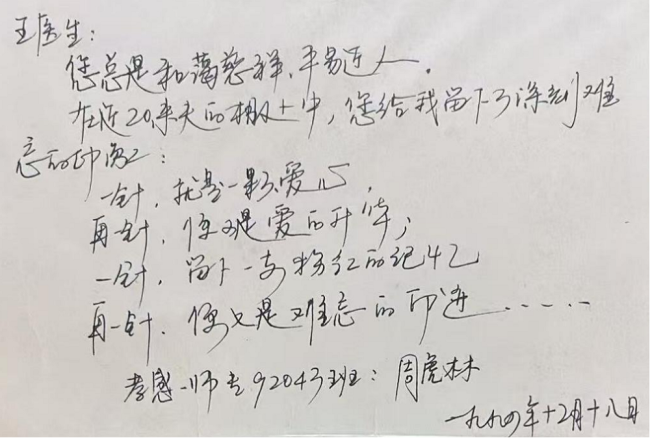 王医生:
您总是和蔼慈祥,平易近人.
在近20来天的相处中,您给我留下了深刻难
忘的印象:
一针,就是一颗爱心,
再一针,便又是爱的升华;
一针,留下一支粉红的记忆
再一针,便又是难忘的印迹......
孝感师专92043班:周虎林
一九九四年十2月十八日